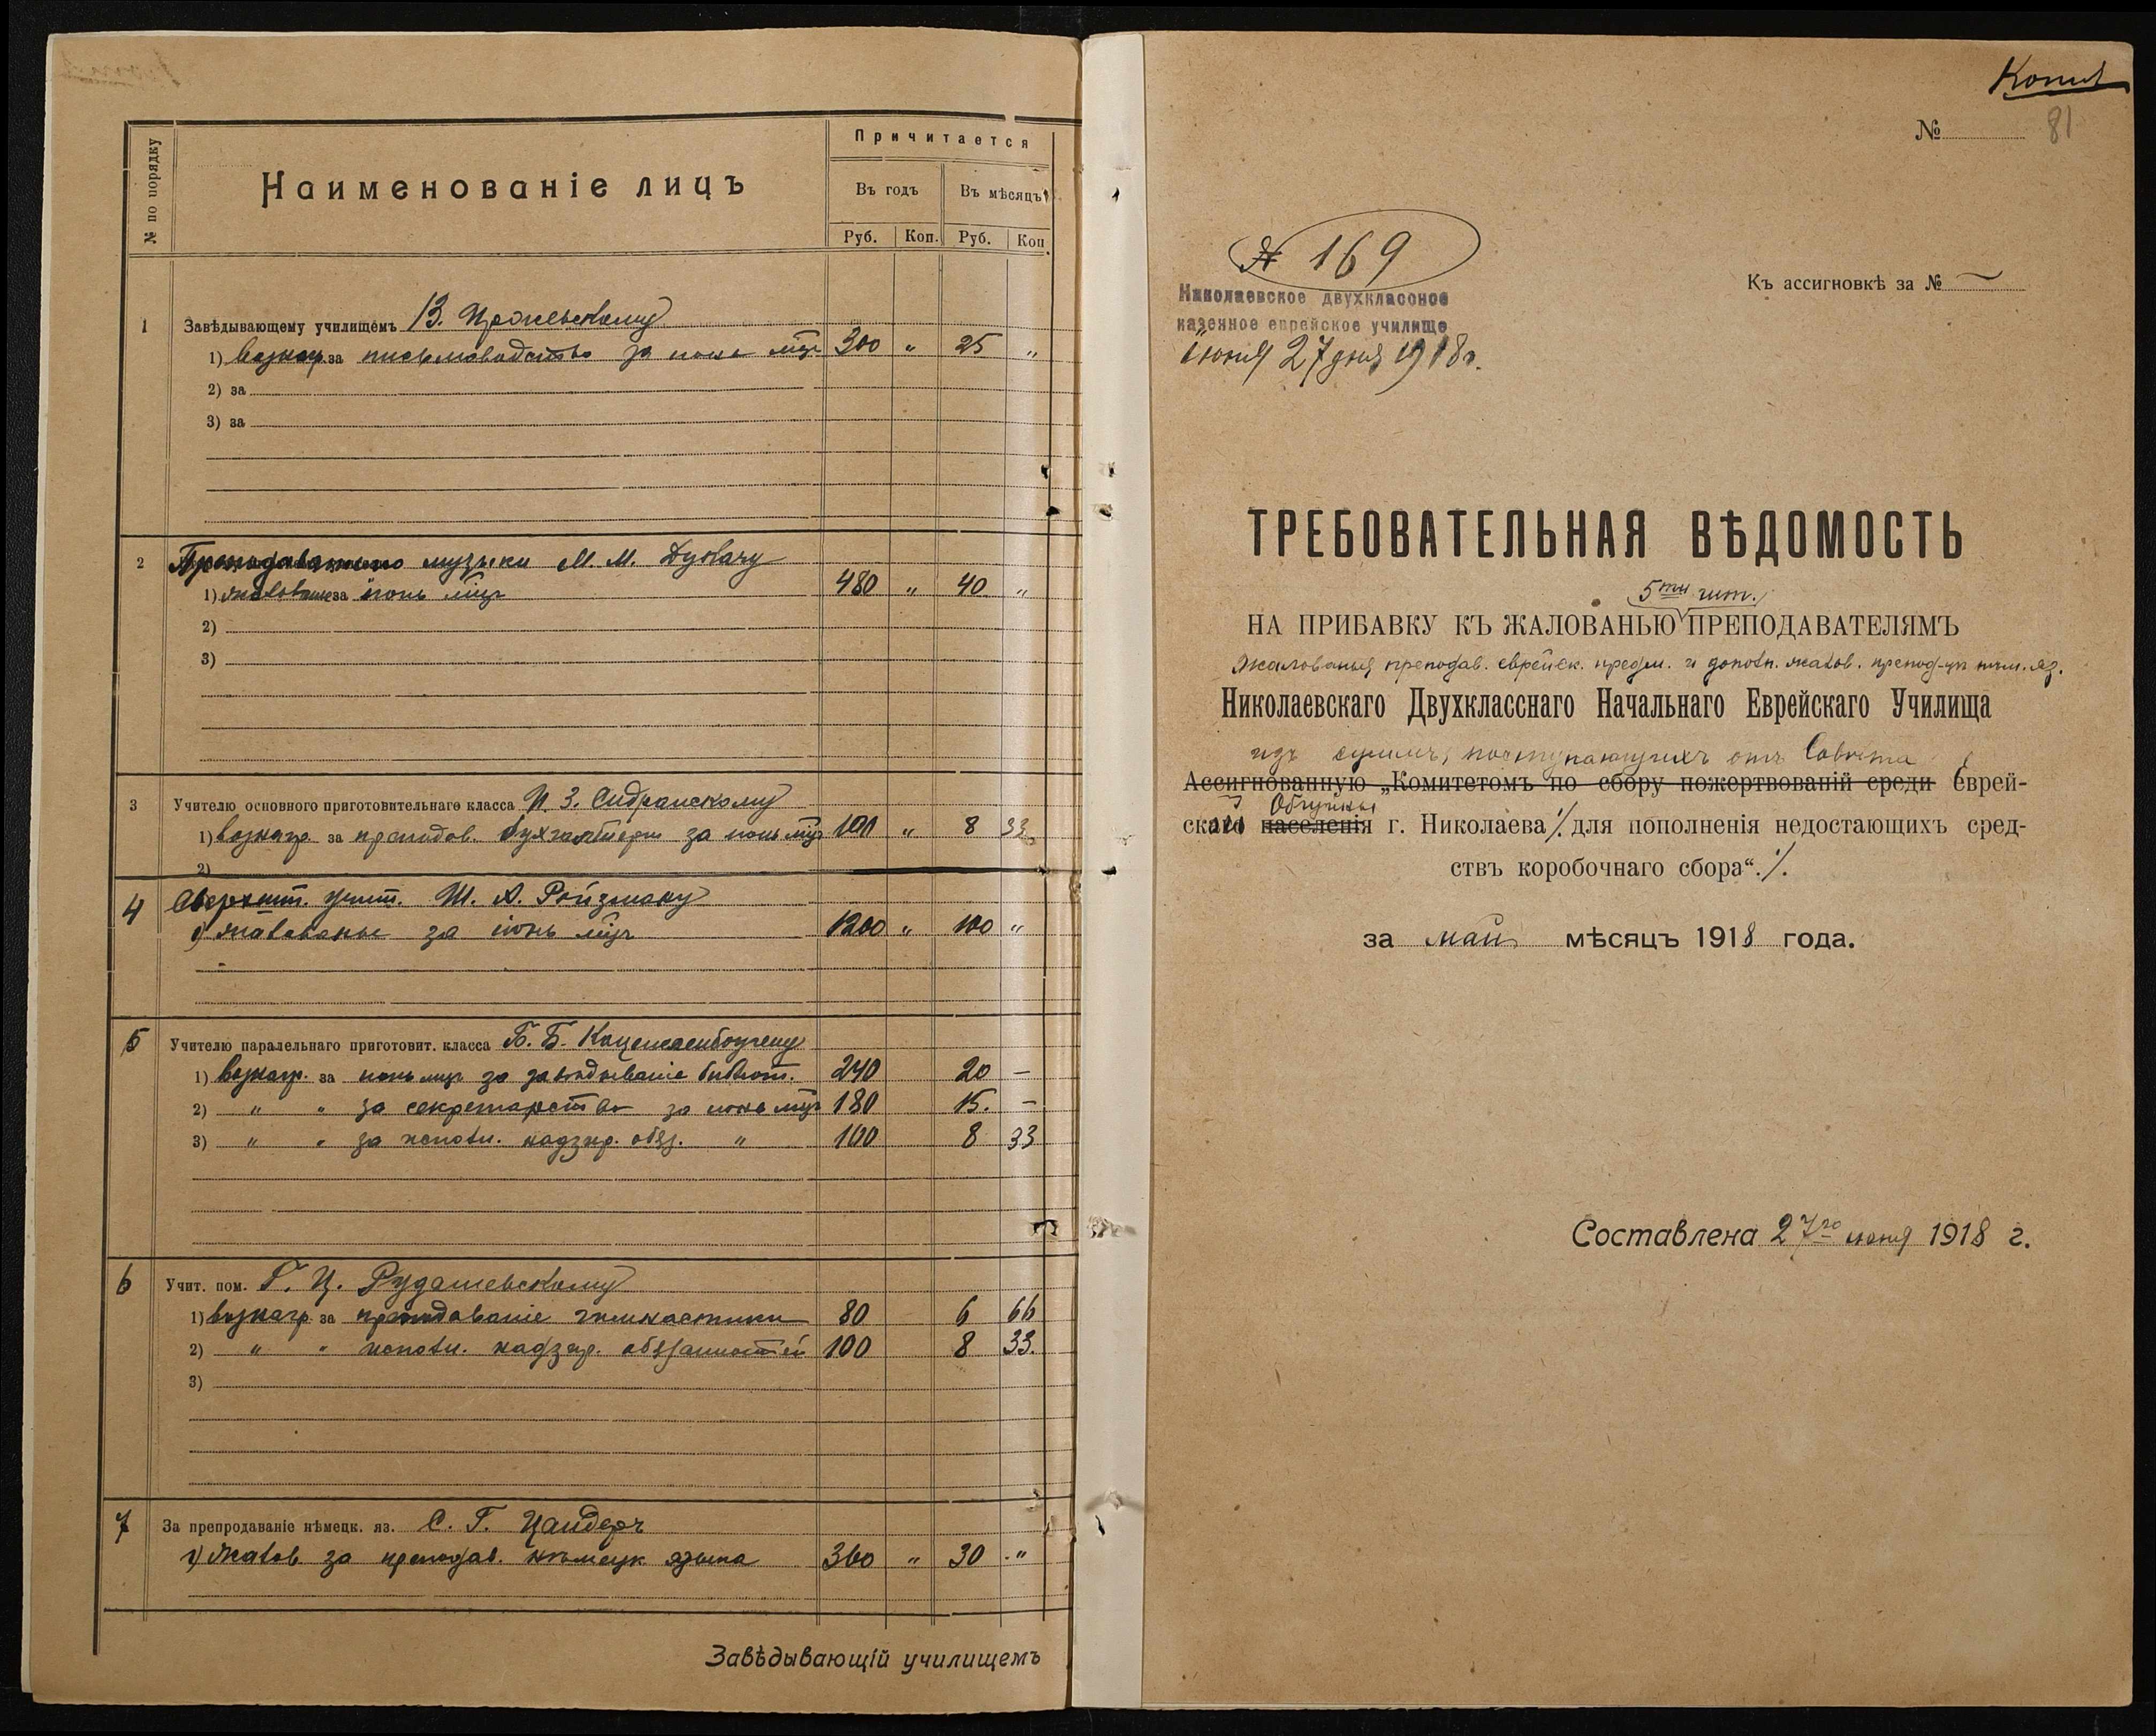 № по порядку
Наименованіе лицъ
Причитается
Въ годъ
Въ мѣсяцъ
Руб. Коп. Руб. Коп.
1 Завѣдывающему училищемъ В.
1) вознагр. за письмоводство за іюнь мць 300 " 25 "
2) за
3) за
2 музыки М. М.
1) жалованье за іюнь мць 480 " 40 "
2)
3)
3 Учителю основного приготовительнаго класса И. З. Сидранскому
1) вознагр. за преподав. бухгалтеріи за іюнь мць 100 " 8 33
2)
4 Сверхшт. учит. Ш. А. Ройзману
1) жалованье за іюнь мць 1200 " 100 "
5 Учителю паралельнаго приготовит. класса Б. Б. Каценеленбогену
1) вознагр. за іюнь мць за завѣдываніе библіот. 240 20 —
2) " " за секретарство за іюнь мць 180 15. —
3) " " за исполн. надзир. обяз. " 100 8 33
6 Учит. пом. Г. Ц. Рудашевскому
1) вознагр. за преподаваніе гимнастики 80 6 66
2) " " исполн. надзир. обязанностей 100 8 33.
3)
7 За препродаваніе нѣмецк. яз. С. Г. Цандеръ
1) Жалов. за преподав. нѣмецк языка 360 " 30 "
Завѣдывающій училищемъ
Копія
№ 81
№ 169
Николаевское двухклассное
казенное еврейское училище
іюня 27 дня 1918 г.
Къ ассигновкѣ за №
ТРЕБОВАТЕЛЬНАЯ ВѢДОМОСТЬ
5ти шт.
НА ПРИБАВКУ КЪ ЖАЛОВАНЬЮ ПРЕПОДАВАТЕЛЯМЪ
жалованья преподав. еврейск. предм. и дополн. жалов. препод-цѣ нѣм. яз.
Николаевскаго Двухкласснаго Начальнаго Еврейскаго Училища
изъ суммъ, поступающихъ отъ Совѣта
Ассигнованную „Комитетомъ по сбору пожертвованій среди Еврей-
Общины
ской населенія г. Николаева ./. для пополненія недостающихъ сред-
ствъ коробочнаго сбора“. ./.
за май мѣсяцъ 1918 года.
Составлена 27го іюня 1918 г.